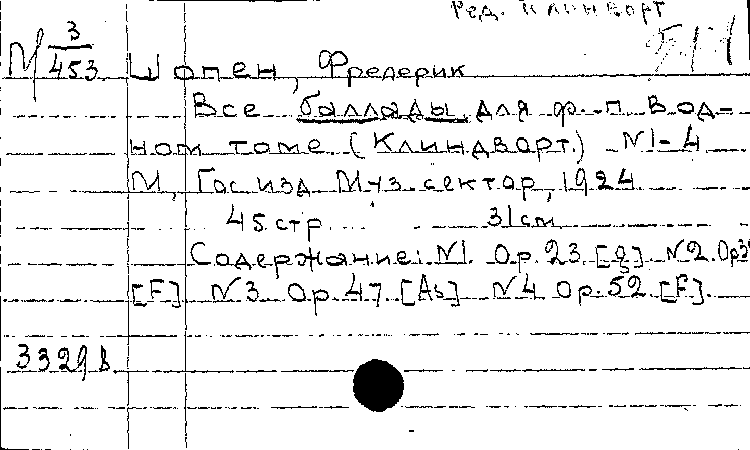 Ред. Клиндворт
М 3/453 Шопен, Фредерик
Все баллады для ф.-п. в од-
ном томе (Клиндворт.) №1-4
М., Гос. изд. Муз. сектор, 1924
45 стр. 31 см
Содержание: №1. Op. 23 [g] №2. Op 38
[F] №3 Op. 47 [As] №4 Op. 52 [F].
3329 в.